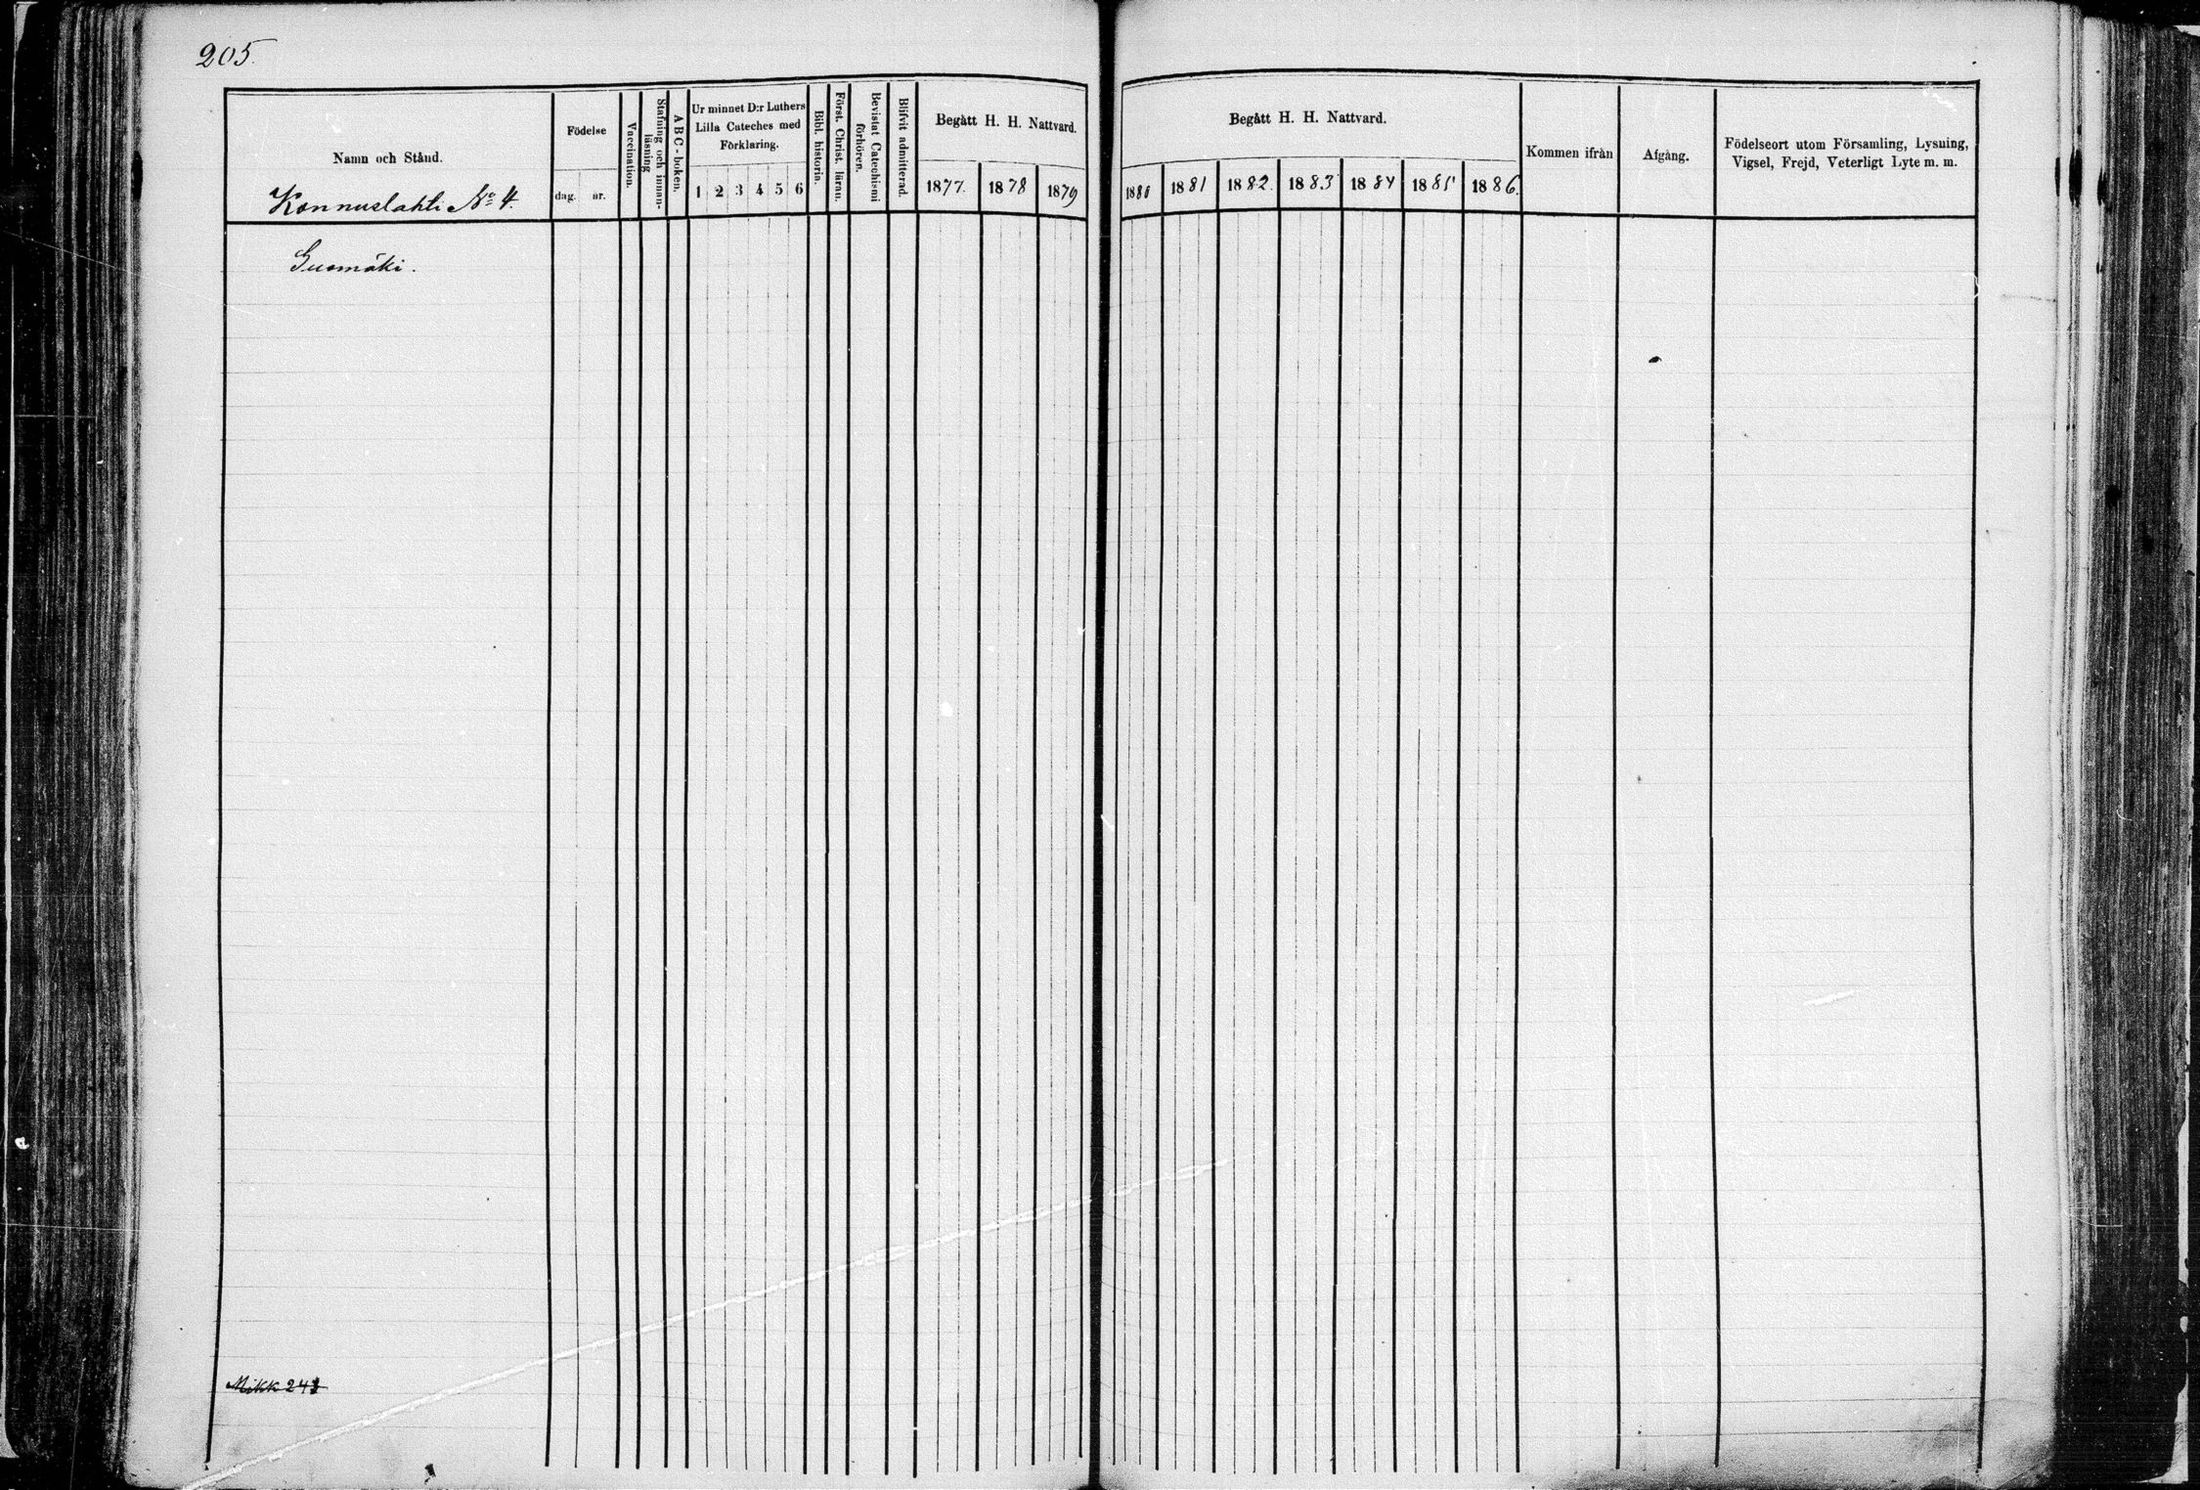 205.
Namn och Stånd.
Konnuslahti No 4.
Födelse
dag. år.
Vaccination.
Stafning och innan-
läsning
ABC-boken.
Ur minnet D:r Luthers
Lilla Cateches med
Förklaring.
1 2 3 4 5 6
Bibl. historia.
Först. Christ. läran.
Bevistat Catechismi
förhören.
Blifvit admitterad.
Begått H. H. Nattvard.
1877. 1878 1879
Begått H. H. Nattvard.
1880 1881 1882. 1883 1884 1885 1886.
Kommen ifrån
Afgång.
Födelseort utom Församling, Lysning,
Vigsel, Frejd, Veterligt Lyte m. m.
Mikk 24